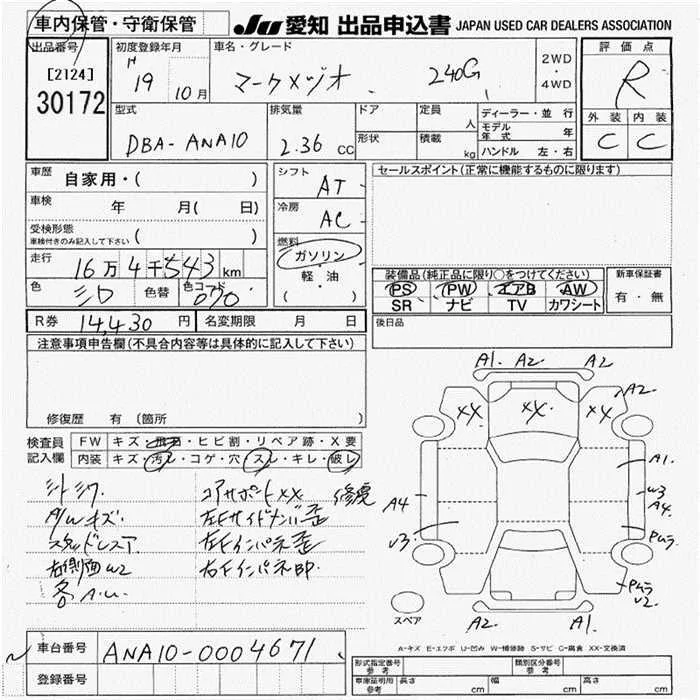 車内保管・守衛保管
JU 愛知 出品申込書 JAPAN USED CAR DEALERS ASSOCIATION
出品番号
[2124]
30172
初度登録年月
H 19 10月
車名・グレード
マークXジオ 240G
2WD
・
4WD
評価点
R
外装 内装
C C
型式
DBA-ANA10
排気量
2.36 CC
ドア
形状
定員 人
積載 kg
ディーラー・並行
モデル年式 年
ハンドル 左・右
車歴 自家用・( )
車検 年 月( 日)
受検形態
車検付きのみ記入して下さい ( )
走行 16万4千543km
色 シロ 色替 色コード 070
シフト AT
冷房 AC
燃料
ガソリン
・
軽・油
( )
セールスポイント(正常に機能するものに限ります)
装備品(純正品に限り○をつけてください)
PS PW エアB AW
SR ナビ TV カワシート
新車保証書
有・無
R券 14,430円 名変期限 月 日
後日品
注意事項申告欄(不具合内容等は具体的に記入して下さい)
修復歴 有 〔箇所 〕
検査員記入欄
FW キズ・飛石・ヒビ割・リペア跡・X要
内装 キズ・汚レ・コゲ・穴・スレ・キレ・破レ
シートシワ
A/Wキズ
スタッドレスタ
右側面W2
各A.U.
コアサポートXX 修復
左Fサイドメンバ歪
左Fインパネ歪
右Fインパネ印
A1. A2 A2
XX XX XX A2
A1.
W3
A4.
A4
U3
Pムラ
Pムラ
U2.
スペア
A2 A1
A-キズ E-エクボ U-凹み W-補修跡 S-サビ C-腐食 XX-交換済
車台番号 ANA10-0004671
登録番号
形式指定番号 参考
類別区分番号 参考
車庫証明用 参考 長さ cm 幅 cm 高さ cm